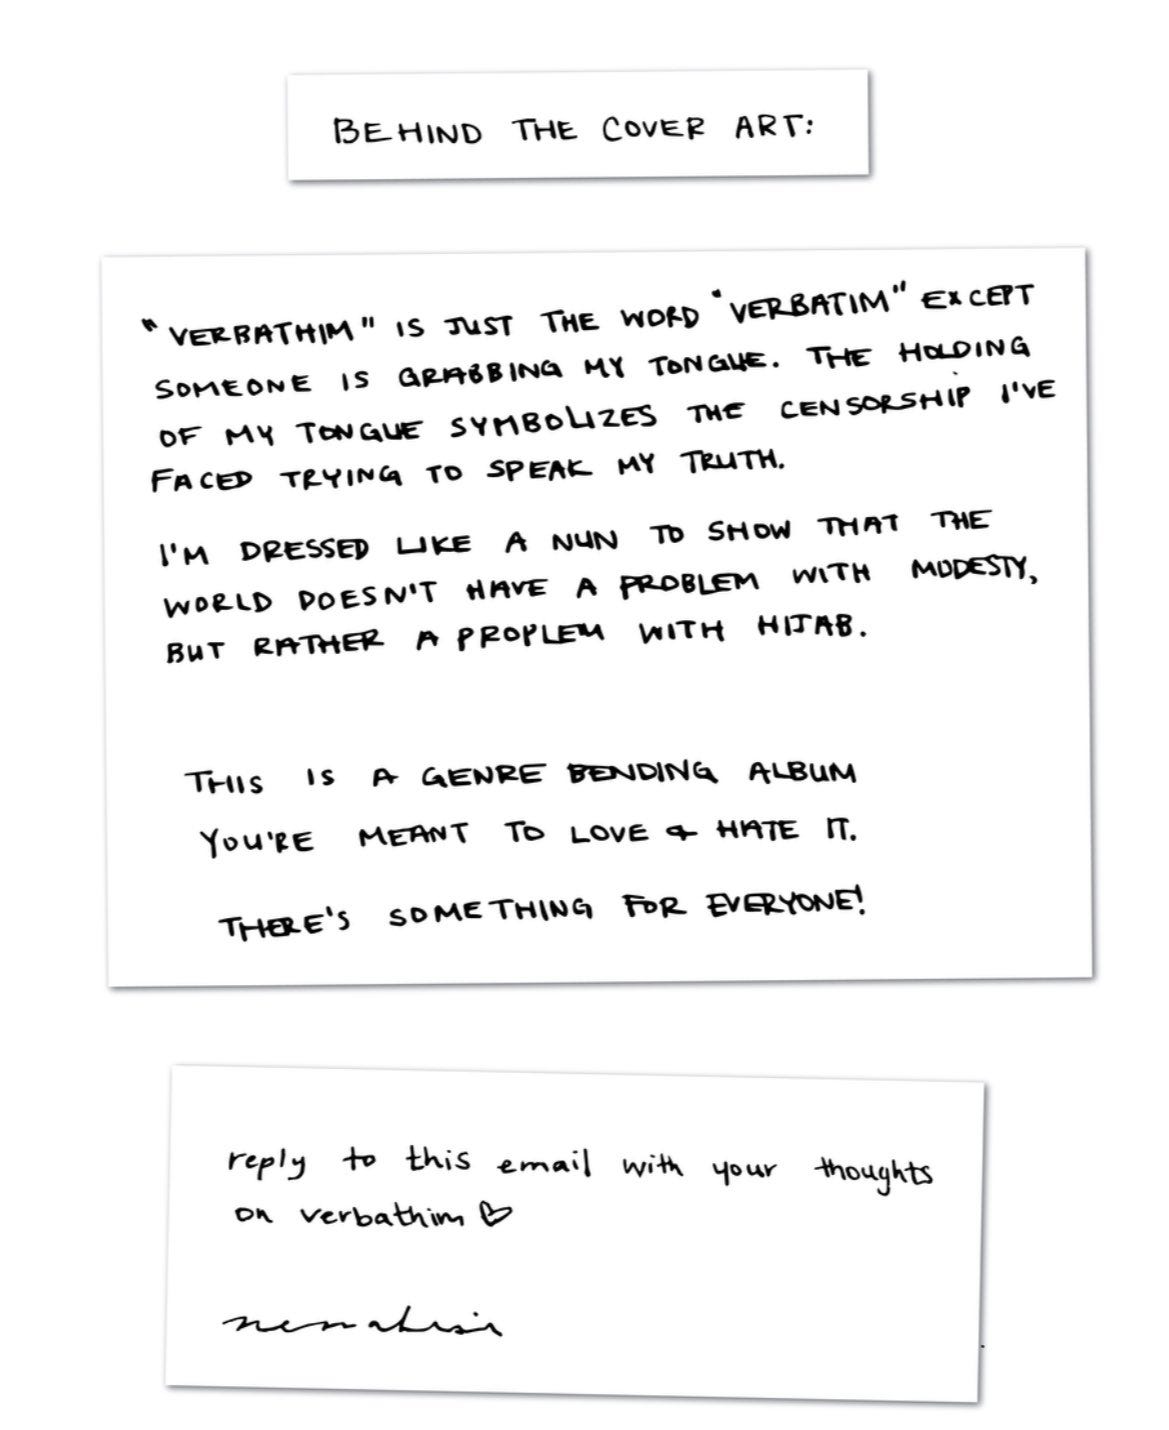 BEHIND THE COVER ART:
"VERBATHIM" IS JUST THE WORD "VERBATIM" EXCEPT
SOMEONE IS GRABBING MY TONGUE. THE HOLDING
OF MY TONGUE SYMBOLIZES THE CENSORSHIP I'VE
FACED TRYING TO SPEAK MY TRUTH.
I'M DRESSED LIKE A NUN TO SHOW THAT THE
WORLD DOESN'T HAVE A PROBLEM WITH MODESTY,
BUT RATHER A PROPLEM WITH HIJAB.
THIS IS A GENRE BENDING ALBUM
YOU'RE MEANT TO LOVE & HATE IT.
THERE'S SOMETHING FOR EVERYONE!
reply to this email with your thoughts
on verbathim ♡
nemahsis